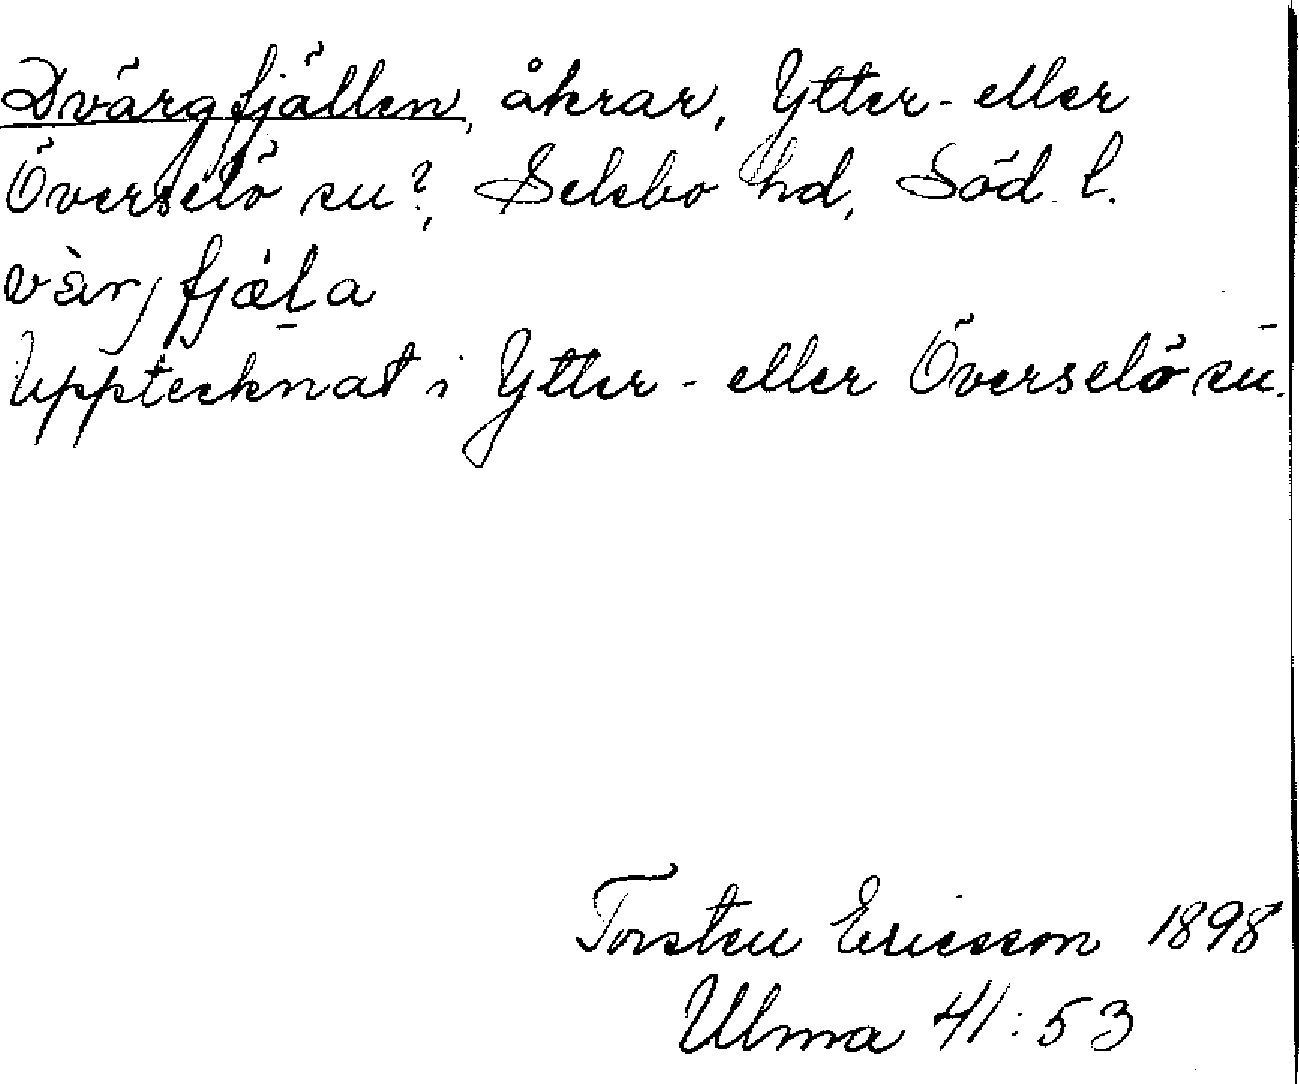 Dvärgfjällen, åkrar, Ytter- eller
Överselö sn?, Selebo hd, Söd. l.
vàrj fjæ̀l̠a
Upptecknat i Ytter- eller Överselö sn.
Torsten Ericsson 1898
Ulma 41:53